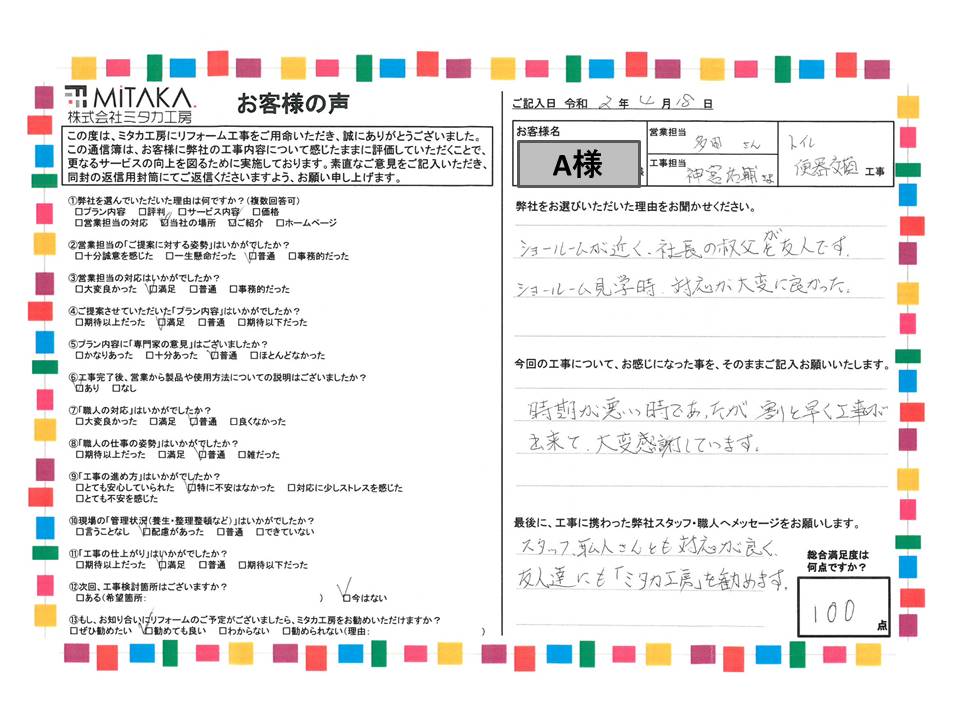 MiTAKA
株式会社ミタカ工房
お客様の声
この度は、ミタカ工房にリフォーム工事をご用命いただき、誠にありがとうございました。
この通信簿は、お客様に弊社の工事内容について感じたままに評価していただくことで、
更なるサービスの向上を図るために実施しております。素直なご意見をご記入いただき、
同封の返信用封筒にてご返信くださいますよう、お願い申し上げます。
①弊社を選んでいただいた理由は何ですか?(複数回答可)
□プラン内容 □評判 □サービス内容 □価格
□営業担当の対応 ☑当社の場所 ☑ご紹介 □ホームページ
②営業担当の「ご提案に対する姿勢」はいかがでしたか?
□十分誠意を感じた □一生懸命だった ☑普通 □事務的だった
③営業担当の対応はいかがでしたか?
□大変良かった ☑満足 □普通 □事務的だった
④ご提案させていただいた「プラン内容」はいかがでしたか?
□期待以上だった ☑満足 □普通 □期待以下だった
⑤プラン内容に「専門家の意見」はございましたか?
□かなりあった □十分あった ☑普通 □ほとんどなかった
⑥工事完了後、営業から製品や使用方法についての説明はございましたか?
☑あり □なし
⑦「職人の対応」はいかがでしたか?
□大変良かった □満足 ☑普通 □良くなかった
⑧「職人の仕事の姿勢」はいかがでしたか?
□期待以上だった □満足 ☑普通 □雑だった
⑨「工事の進め方」はいかがでしたか?
□とても安心していられた ☑特に不安はなかった □対応に少しストレスを感じた
□とても不安を感じた
⑩現場の「管理状況(養生・整理整頓など)」はいかがでしたか?
□言うことなし ☑配慮があった □普通 □できていない
⑪「工事の仕上がり」はいかがでしたか?
□期待以上だった ☑満足 □普通 □期待以下だった
⑫次回、工事検討箇所はございますか?
□ある(希望箇所: ) ☑今はない
⑬もし、お知り合いにリフォームのご予定がございましたら、ミタカ工房をお勧めいただけますか?
□ぜひ勧めたい ☑勧めても良い □わからない □勧められない(理由: )
ご記入日 令和 2 年 4 月 18 日
お客様名
A様
営業担当
多田 さん
工事担当
神宮 さん
トイレ
便器交換 工事
弊社をお選びいただいた理由をお聞かせください。
ショールームが近く、社長の叔父が友人です.
ショールーム見学時、対応が大変に良かった。
今回の工事について、お感じになった事を、そのままご記入お願いいたします。
時期が悪い時であったが割と早く工事が
出来て、大変感謝しています。
最後に、工事に携わった弊社スタッフ・職人へメッセージをお願いします。
スタッフ、職人さんとも対応が良く、
友人達にも「ミタカ工房」を勧めます。
総合満足度は
何点ですか?
100 点